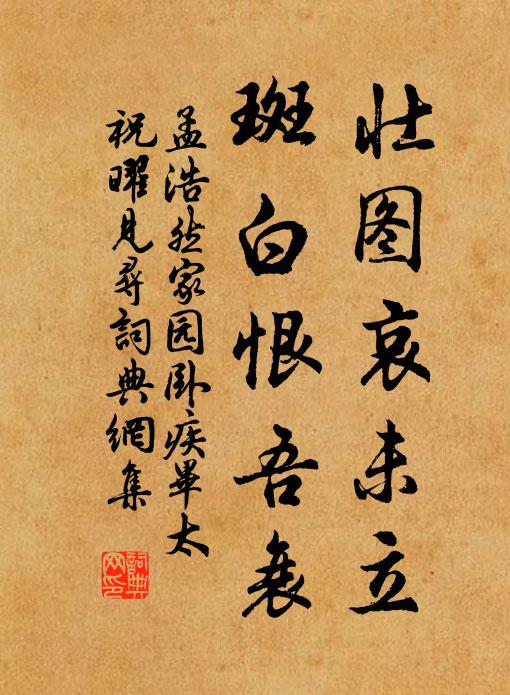 壮图哀未立
斑白恨吾衰
孟浩然家园卧疾畢太
祝曜見尋詞典網集
詞典
网印